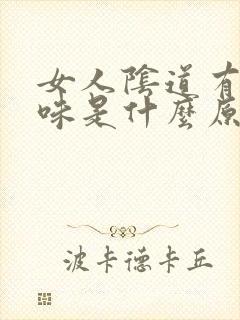 女人陰道有
味是什麼原
波卡德卡丘